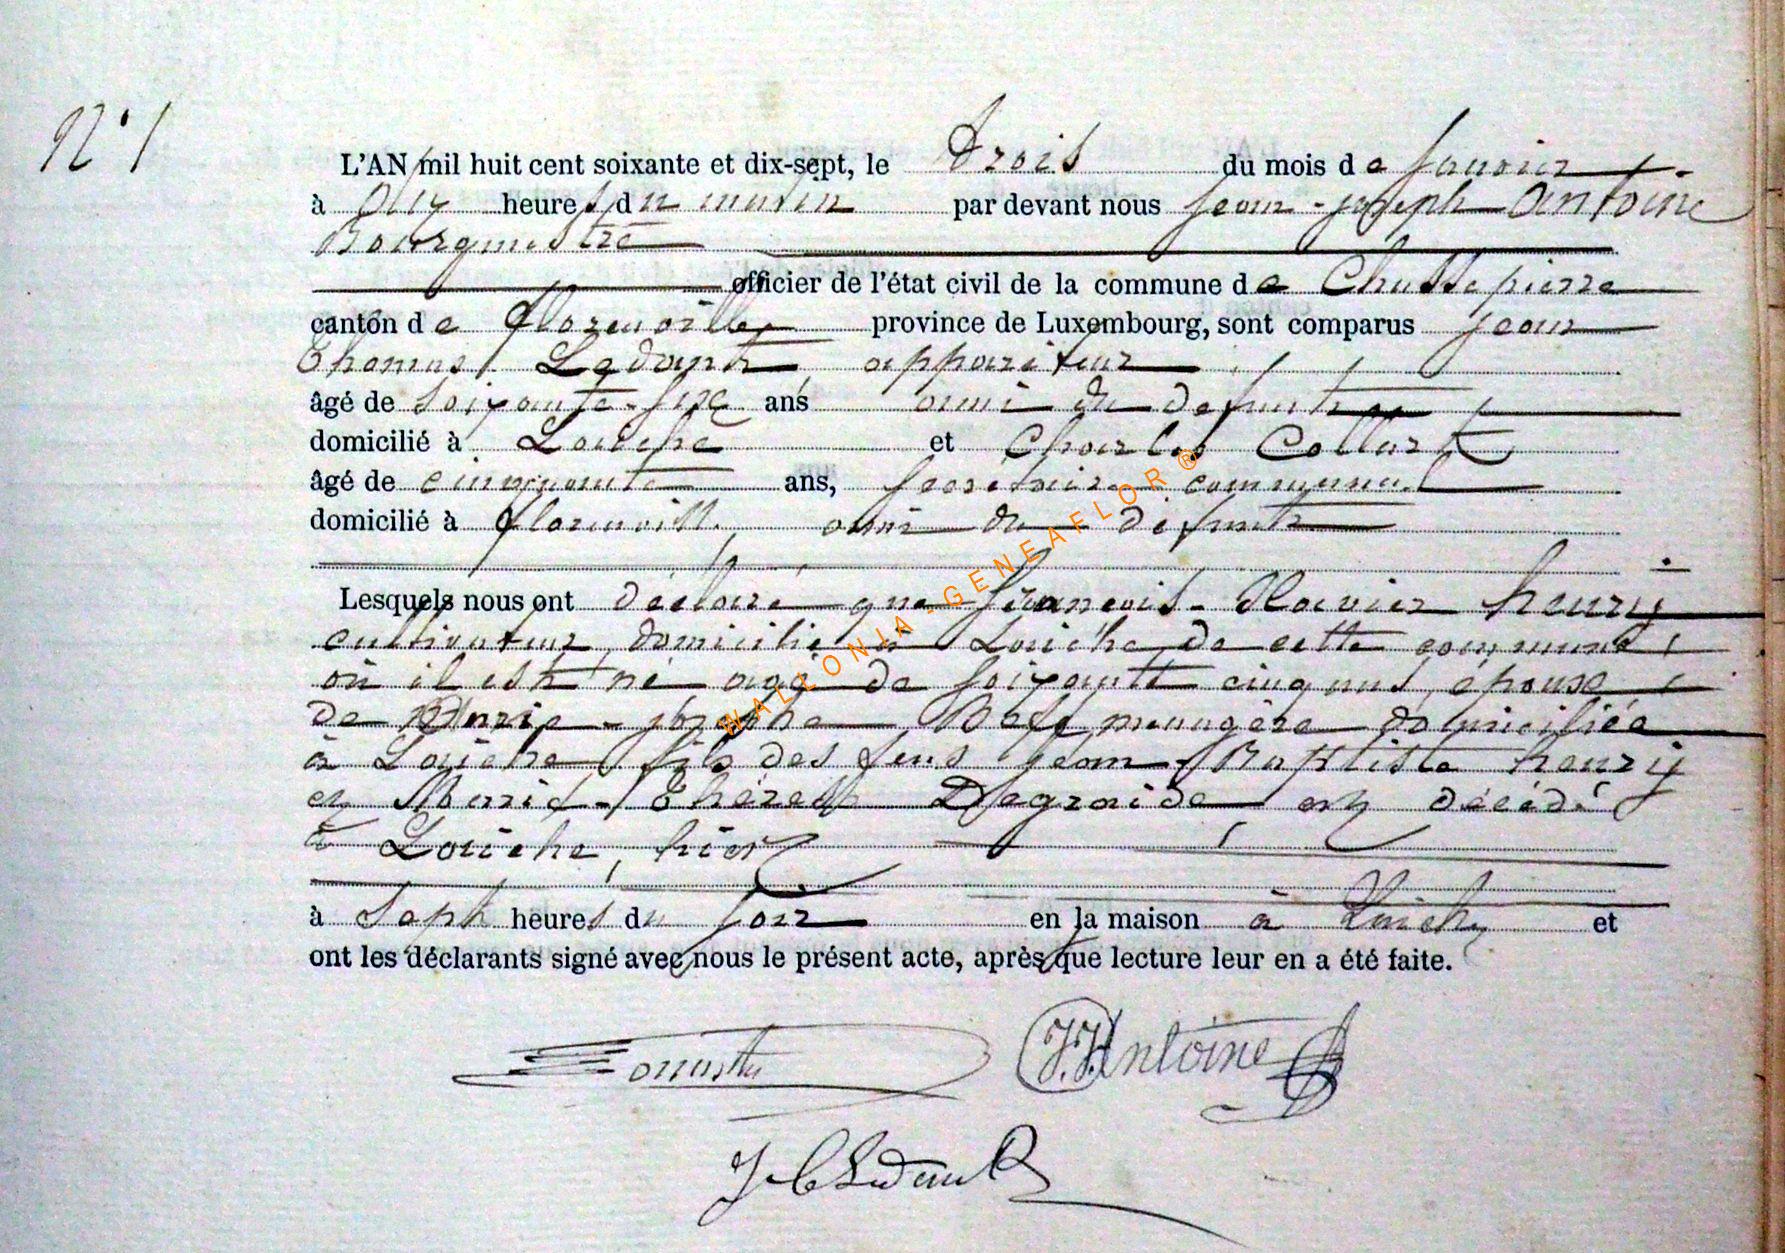 N° 1
L'AN mil huit cent soixante et dix-sept, le trois du mois de Janvier
à dix heures du matin par devant nous Jean-Joseph Antoine
Bourgmestre
officier de l'état civil de la commune de Chassepierre
canton de Florenville, province de Luxembourg, sont comparus Jean
Thomas Ledant appariteur
âgé de soixante-six ans ami du defunt
domicilié à Laiche et Charles Collart
âgé de cinquante ans, secrétaire communal
domicilié à Florenville ami du défunt
Lesquels nous ont déclaré que François-Xavier henry
cultivateur, domicilié à Laiche de cette commune,
où il est né agé de soixante cinq ans, époux
de Marie- ménagère domiciliée
à Laiche fils des feus Jean-Baptiste henry
et Marie-Thérèse est décédé
à Laiche, hier
à sept heures du soir en la maison à Laiche et
ont les déclarants signé avec nous le présent acte, après que lecture leur en a été faite.
J.J. Antoine
J T Ledant
WALLONIA-GENEAFLOR ®